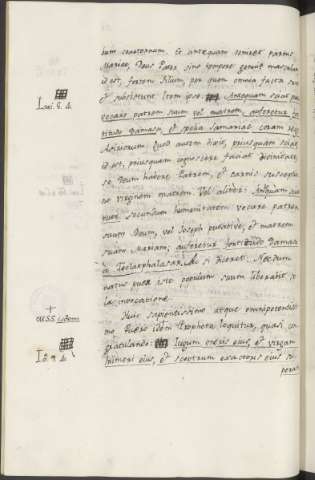 tum coaeternum. Et antequam somes parens
Mariae, Deus Pater sine tempore genuit masculum
id est, fortem filium, per quem omnia facta sunt
et substiterunt. Item ipse Antequam sciat puer
vocare patrem suum vel matrem, auferetur
Damasci, et spolia Samariae coram Rege
Assiriorum. Quod autem dicit, priusquam sciat
id est, priusquam cognoscere faciat divinitate
se Deum habere Patrem, et carnis susceptae
virginem matrem. Vel aliter: Antequam sciat
puer secundum humanitatem vocare patrem
suum Deum, vel Joseph putative, et matrem
suam Mariam, auferetur fortitudo Damasci
a Teclatphalasar. Ac si diceret: Necdum
natus puer iste populum suum liberabit
invocatione.
Huic sapientissimo atque omnipotentissimo
puero idem Propheta loquitur, quasi
gratulando: Iugum oneris eius, et virgam
humeri eius, et sceptrum exactoris eius
Isai. 8. d.
+
Isai. 9. a.